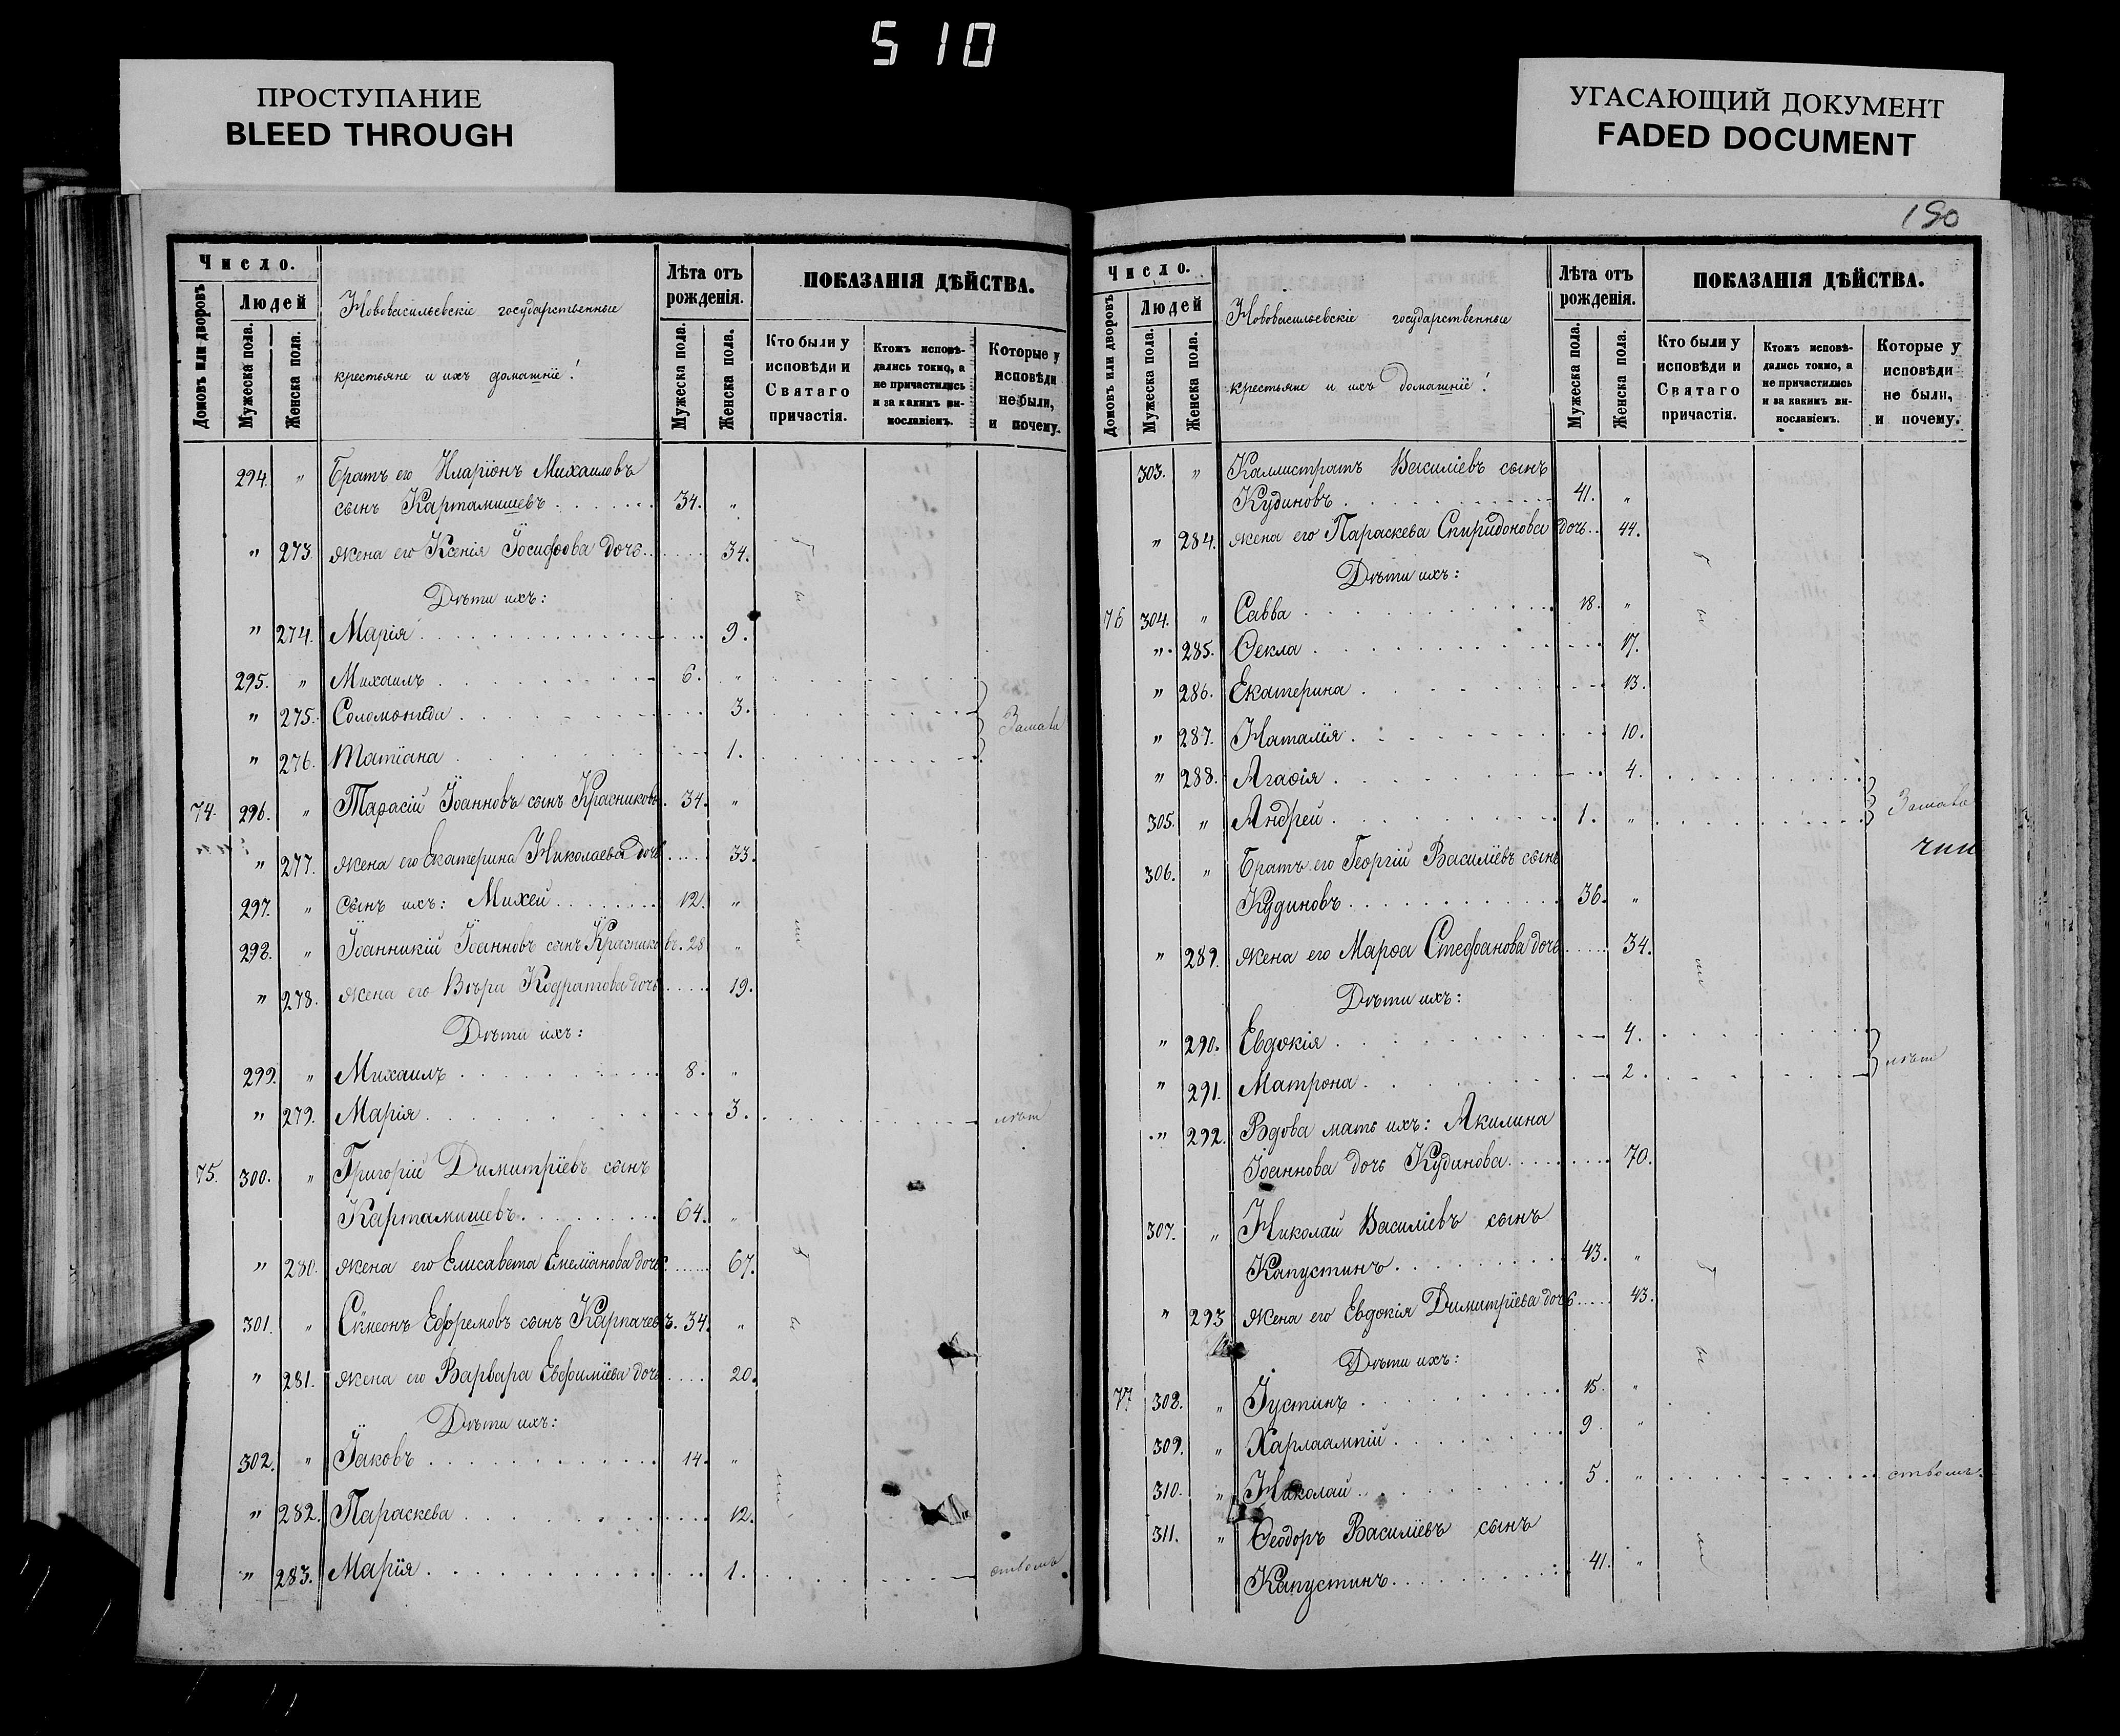 510
ПРОСТУПАНИЕ
BLEED THROUGH
УГАСАЮЩИЙ ДОКУМЕНТ
FADED DOCUMENT
Число.
Домовъ или дворовъ
Людей
Мужеска пола.
Женска пола.
Нововасильевскіе государственные
крестьяне и ихъ домашніе!
Лѣта отъ
рожденія.
Мужеска пола.
Женска пола.
ПОКАЗАНІЯ ДѢЙСТВА.
Кто были у
исповѣди и
Святаго
причастія.
Ктожъ исповѣ-
дались токмо, а
не причастились
и за какимъ ви-
нославіемъ.
Которые у
исповѣди
не были,
и почему.
294. " Братъ его Иларіонъ Михаиловъ
сынъ Картамишевъ 34. "
" 273. жена его Ксенія Іосифова дочь 34.
Дѣти ихъ:
" 274. Марія 9.
295. " Михаилъ 6. "
" 275. Соломонида 3.
" 276. Татіана 1.
74. 296. " Тарасій Іоанновъ сынъ Красниковъ. 34. "
" 277. жена его Екатерина Николаева дочь 33.
297. " Сынъ ихъ: Михей 12. "
298. " Іоанникій Іоанновъ сынъ Красниковъ. 28 "
" 278. жена его Вѣра Кодратова дочь 19.
Дѣти ихъ:
299. " Михаилъ 8. "
" 279. Марія 3. лѣт
75. 300. " Григорій Димитріевъ сынъ
Картамишевъ 64. "
" 280. жена его Елисавета Емеліанова дочь 67.
301. " Сімеонъ Ефремовъ сынъ Карпачевъ. 34. "
" 281. жена его Варвара Евфиміева дочь 20.
Дѣти ихъ:
302. " Іаковъ 14. "
" 282. Параскева 12.
" 283. Марія 1. ством
190
Число.
Домовъ или дворовъ
Людей
Мужеска пола.
Женска пола.
Нововасильевскіе государственные
крестьяне и ихъ домашніе!
Лѣта отъ
рожденія.
Мужеска пола.
Женска пола.
ПОКАЗАНІЯ ДѢЙСТВА.
Кто были у
исповѣди и
Святаго
причастія.
Ктожъ исповѣ-
дались токмо, а
не причастились
и за какимъ ви-
нославіемъ.
Которые у
исповѣди
не были,
и почему.
303. " Каллистратъ Василіевъ сынъ
Кудиновъ 41. "
" 284. жена его Параскева Спиридонова дочь 44.
Дѣти ихъ:
76 304. " Савва 18. "
" 285. Ѳекла 17.
" 286. Екатерина 13.
" 287. Наталія 10.
" 288. Агаѳія 4.
305. " Андрей 1. "
306. " Братъ его Георгій Василіевъ сынъ
Кудиновъ 36. "
" 289. жена его Марѳа Стефанова дочь 34.
Дѣти ихъ:
" 290. Евдокія 4.
" 291. Матрона 2. лѣт
" 292. Вдова мать ихъ: Акилина
Іоаннова дочь Кудинова 70.
307. " Николай Василіевъ сынъ
Капустинъ 43. "
" 293 жена его Евдокія Димитріева дочь 43.
Дѣти ихъ:
77 308. " Іустинъ 15. "
309. " Харлаампій 9. "
310. " Николай 5. " ствомъ.
311. " Ѳеодоръ Василіевъ сынъ
Капустинъ 41. "